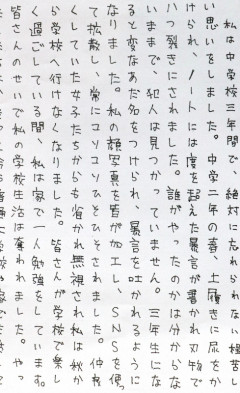 私は中学校三年間で、絶対に忘れられない程苦し
い思いをしました。中学二年の春、上履きに尿をか
けられ、ノートには度を超えた暴言が書かれ刃物で
八つ裂きにされました。誰がやったのかは分からな
いままで、犯人は見つかっていません。三年生にな
ると変なあだ名をつけられ、暴言を吐かれるように
なりました。私の顔写真を皆が加工し、SNSを使っ
て拡散し、常にコソコソひとひそされました。仲良
くしていた女子たちからも省かれ無視され私は秋か
ら学校へ行けなくなりました。皆さんが学校で楽し
く過ごしている間、私は家で一人勉強をしています。
皆さんのせいで私の学校生活は奪われました。やっ